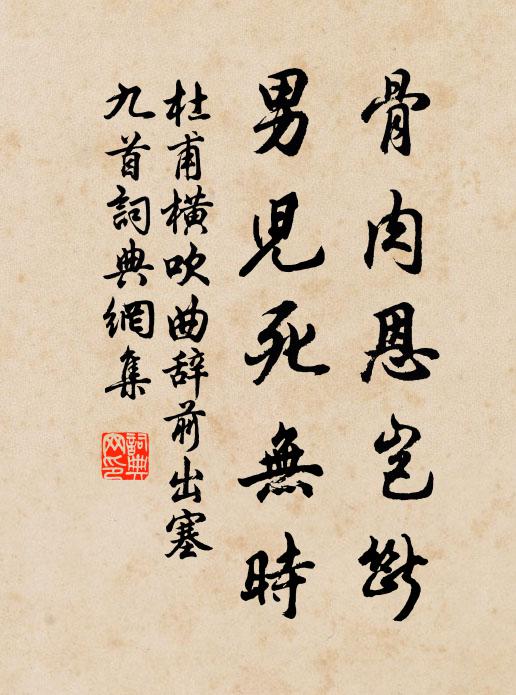 骨肉恩岂斷
男兒死無時
杜甫橫吹曲辞前出塞
九首詞典網集
詞典网印